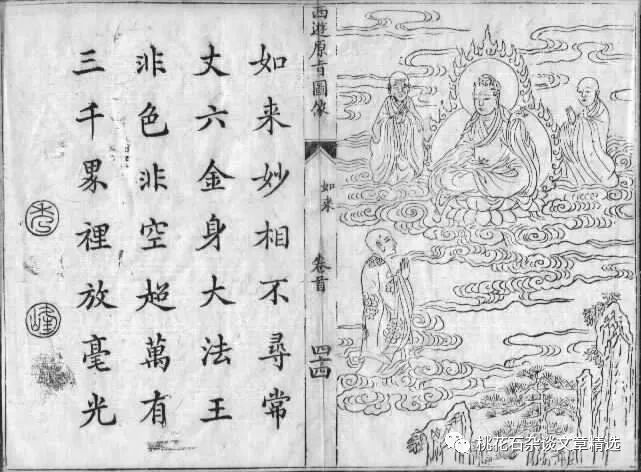 西遊原旨圖像
如来
卷首
四四
如来妙相不尋常
丈六金身大法王
非色非空超萬有
三千界裡放毫光
峰
桃花石杂谈文章精选